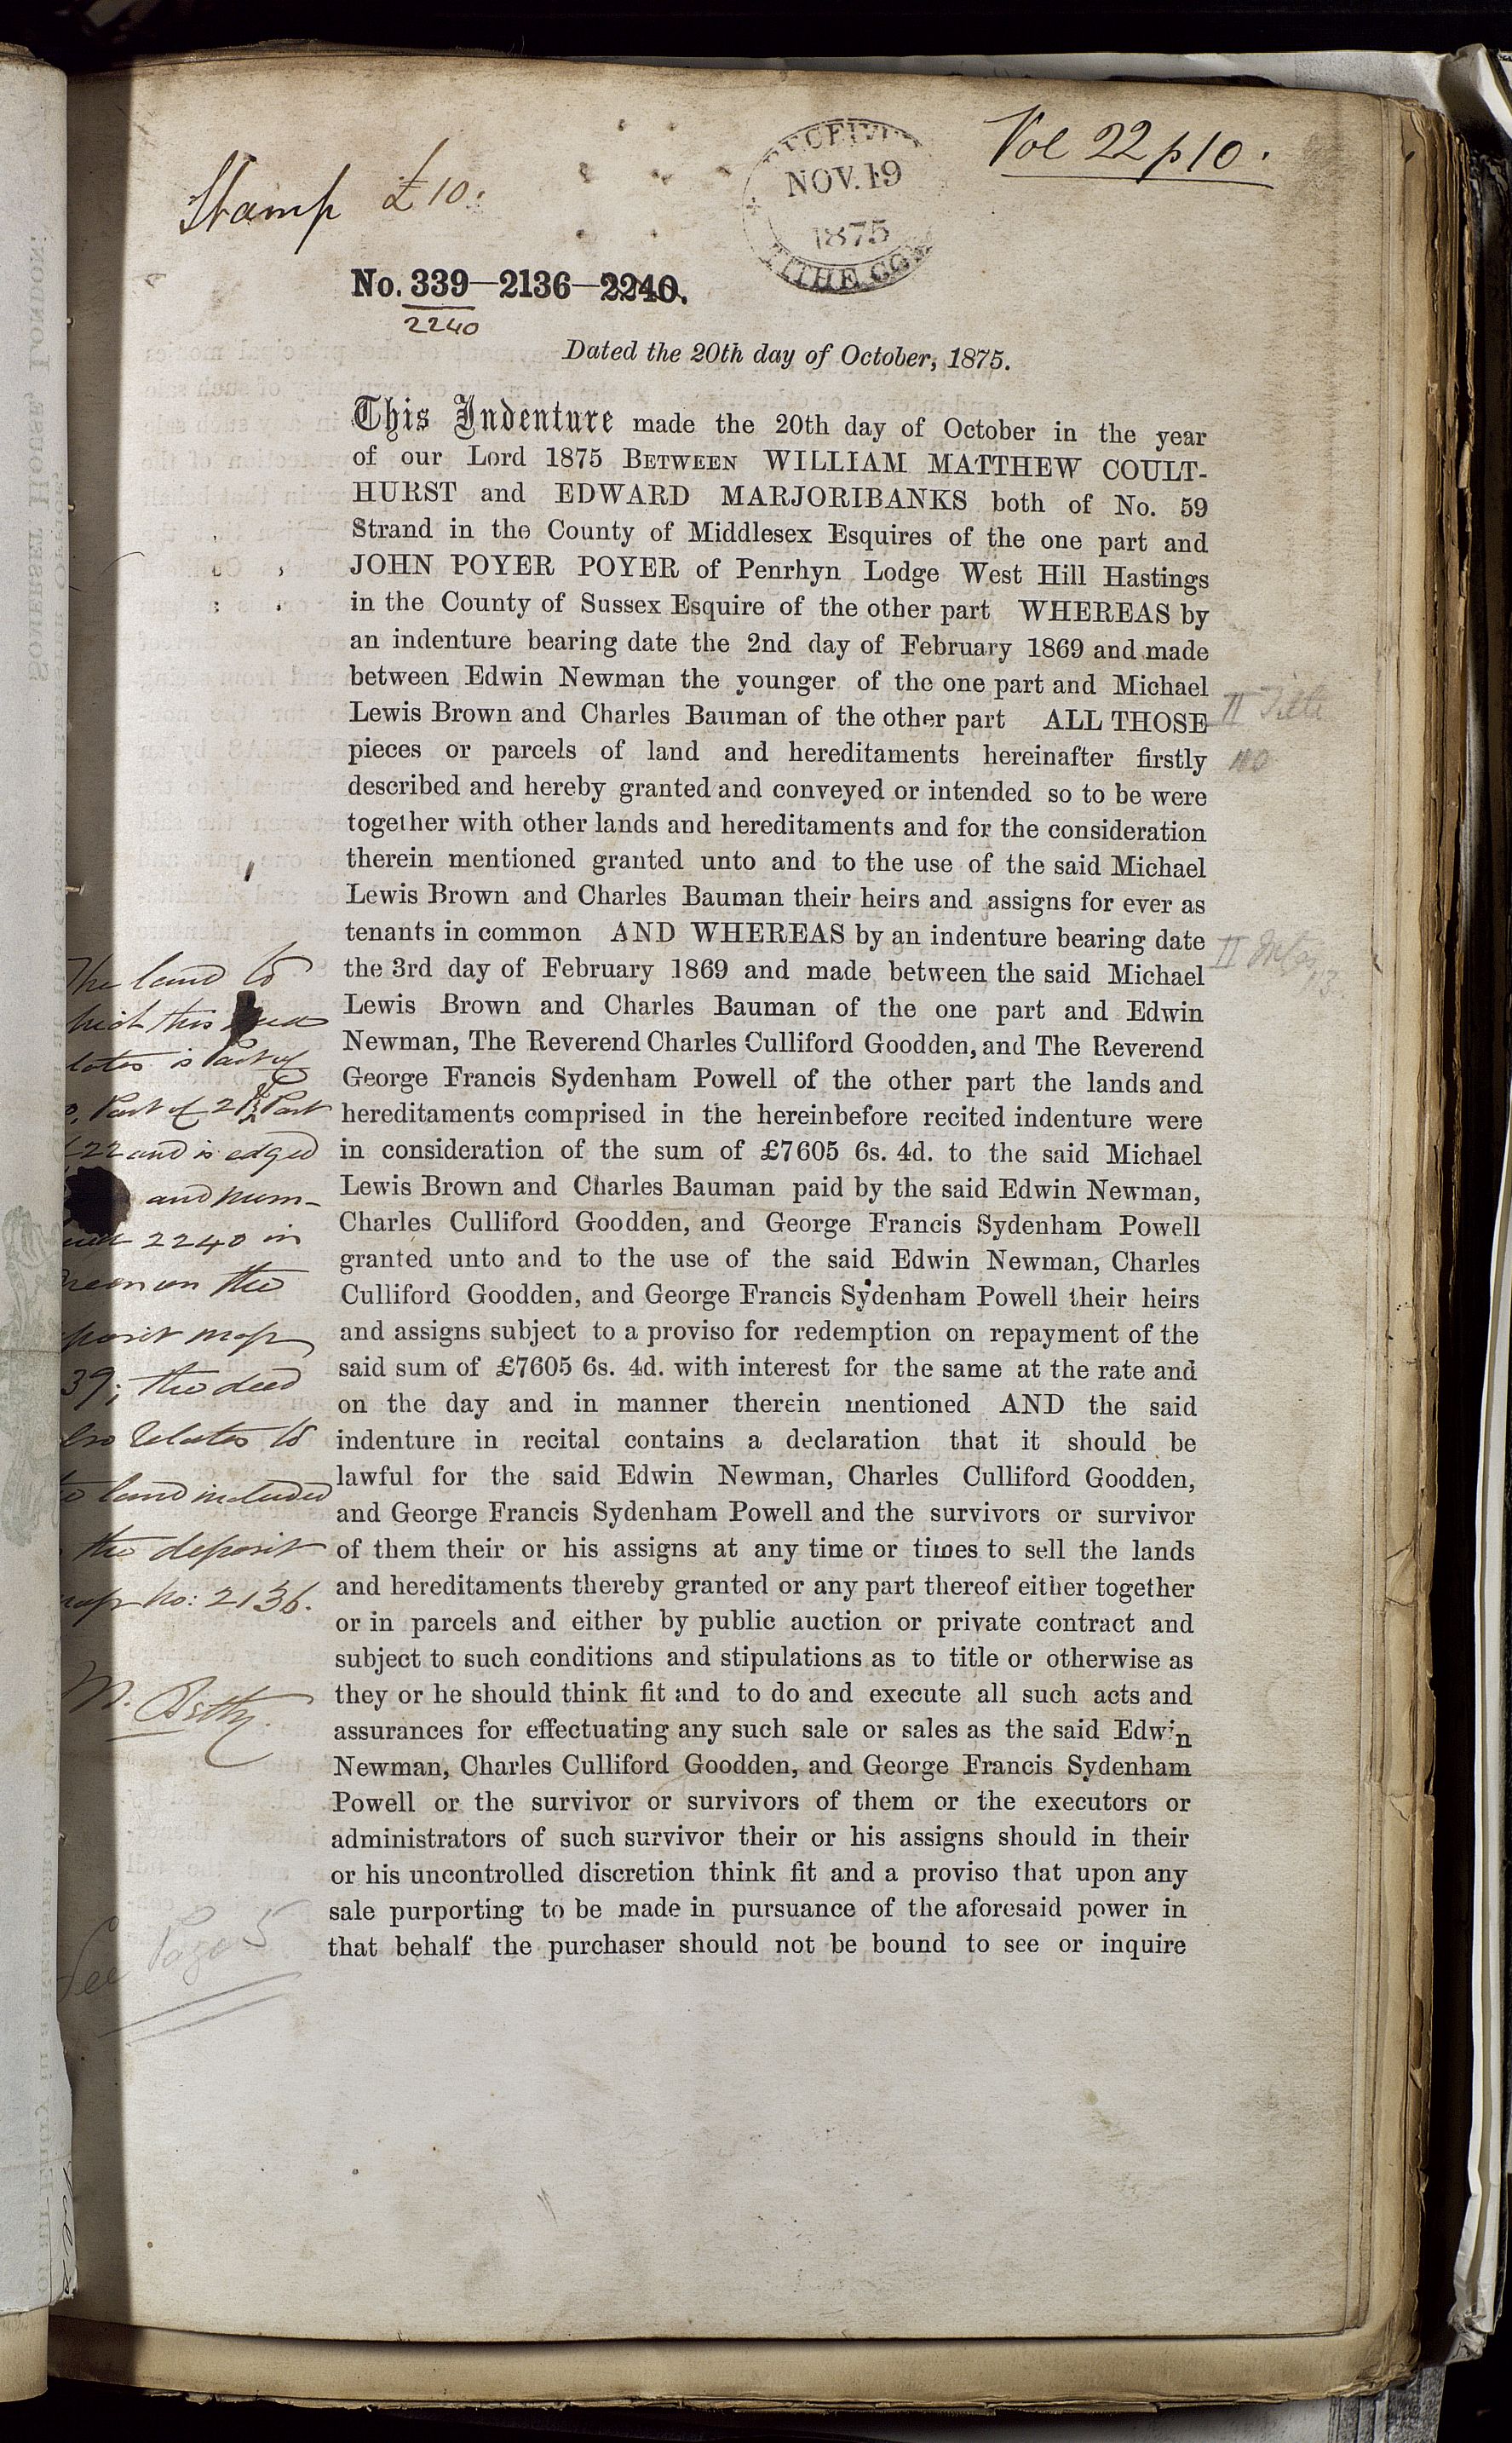 Vol 22 p 10.
Stamp £10.
NOV. 19
1875
TITHE COM
No. 339—2136—2240.
2240
Dated the 20th day of October, 1875.
This Indenture made the 20th day of October in the year
of our Lord 1875 BETWEEN WILLIAM MATTHEW COULT-
HURST and EDWARD MARJORIBANKS both of No. 59
Strand in the County of Middlesex Esquires of the one part and
JOHN POYER POYER of Penrhyn Lodge West Hill Hastings
in the County of Sussex Esquire of the other part WHEREAS by
an indenture bearing date the 2nd day of February 1869 and made
between Edwin Newman the younger of the one part and Michael
Lewis Brown and Charles Bauman of the other part ALL THOSE
pieces or parcels of land and hereditaments hereinafter firstly
described and hereby granted and conveyed or intended so to be were
together with other lands and hereditaments and for the consideration
therein mentioned granted unto and to the use of the said Michael
Lewis Brown and Charles Bauman their heirs and assigns for ever as
tenants in common AND WHEREAS by an indenture bearing date
the 3rd day of February 1869 and made between the said Michael
Lewis Brown and Charles Bauman of the one part and Edwin
Newman, The Reverend Charles Culliford Goodden, and The Reverend
George Francis Sydenham Powell of the other part the lands and
hereditaments comprised in the hereinbefore recited indenture were
in consideration of the sum of £7605 6s. 4d. to the said Michael
Lewis Brown and Charles Bauman paid by the said Edwin Newman,
Charles Culliford Goodden, and George Francis Sydenham Powell
granted unto and to the use of the said Edwin Newman, Charles
Culliford Goodden, and George Francis Sydenham Powell their heirs
and assigns subject to a proviso for redemption on repayment of the
said sum of £7605 6s. 4d. with interest for the same at the rate and
on the day and in manner therein mentioned AND the said
indenture in recital contains a declaration that it should be
lawful for the said Edwin Newman, Charles Culliford Goodden,
and George Francis Sydenham Powell and the survivors or survivor
of them their or his assigns at any time or times to sell the lands
and hereditaments thereby granted or any part thereof either together
or in parcels and either by public auction or private contract and
subject to such conditions and stipulations as to title or otherwise as
they or he should think fit and to do and execute all such acts and
assurances for effectuating any such sale or sales as the said Edwin
Newman, Charles Culliford Goodden, and George Francis Sydenham
Powell or the survivor or survivors of them or the executors or
administrators of such survivor their or his assigns should in their
or his uncontrolled discretion think fit and a proviso that upon any
sale purporting to be made in pursuance of the aforesaid power in
that behalf the purchaser should not be bound to see or inquire
II Title
The land to
this
is Part of
Part of 21 Part
22 and is edged
and num-
2240 in
on the
map
39; the deed
relates to
land included
the deposit
No: 2136.
See Page 5